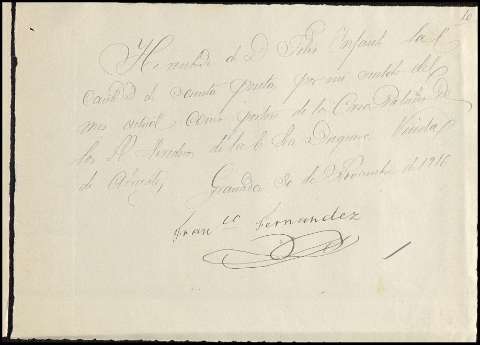 10
He recibido de D. Felix Infant la
cantd d de sesenta ptas por mi sueldo del
mes actual como portero de la Casa Palacio de
los H. herederos de la E. Sra Duquesa Viuda
de Abrantes,
Granada 30 de Noviembre de 1916
Fran co Fernandez